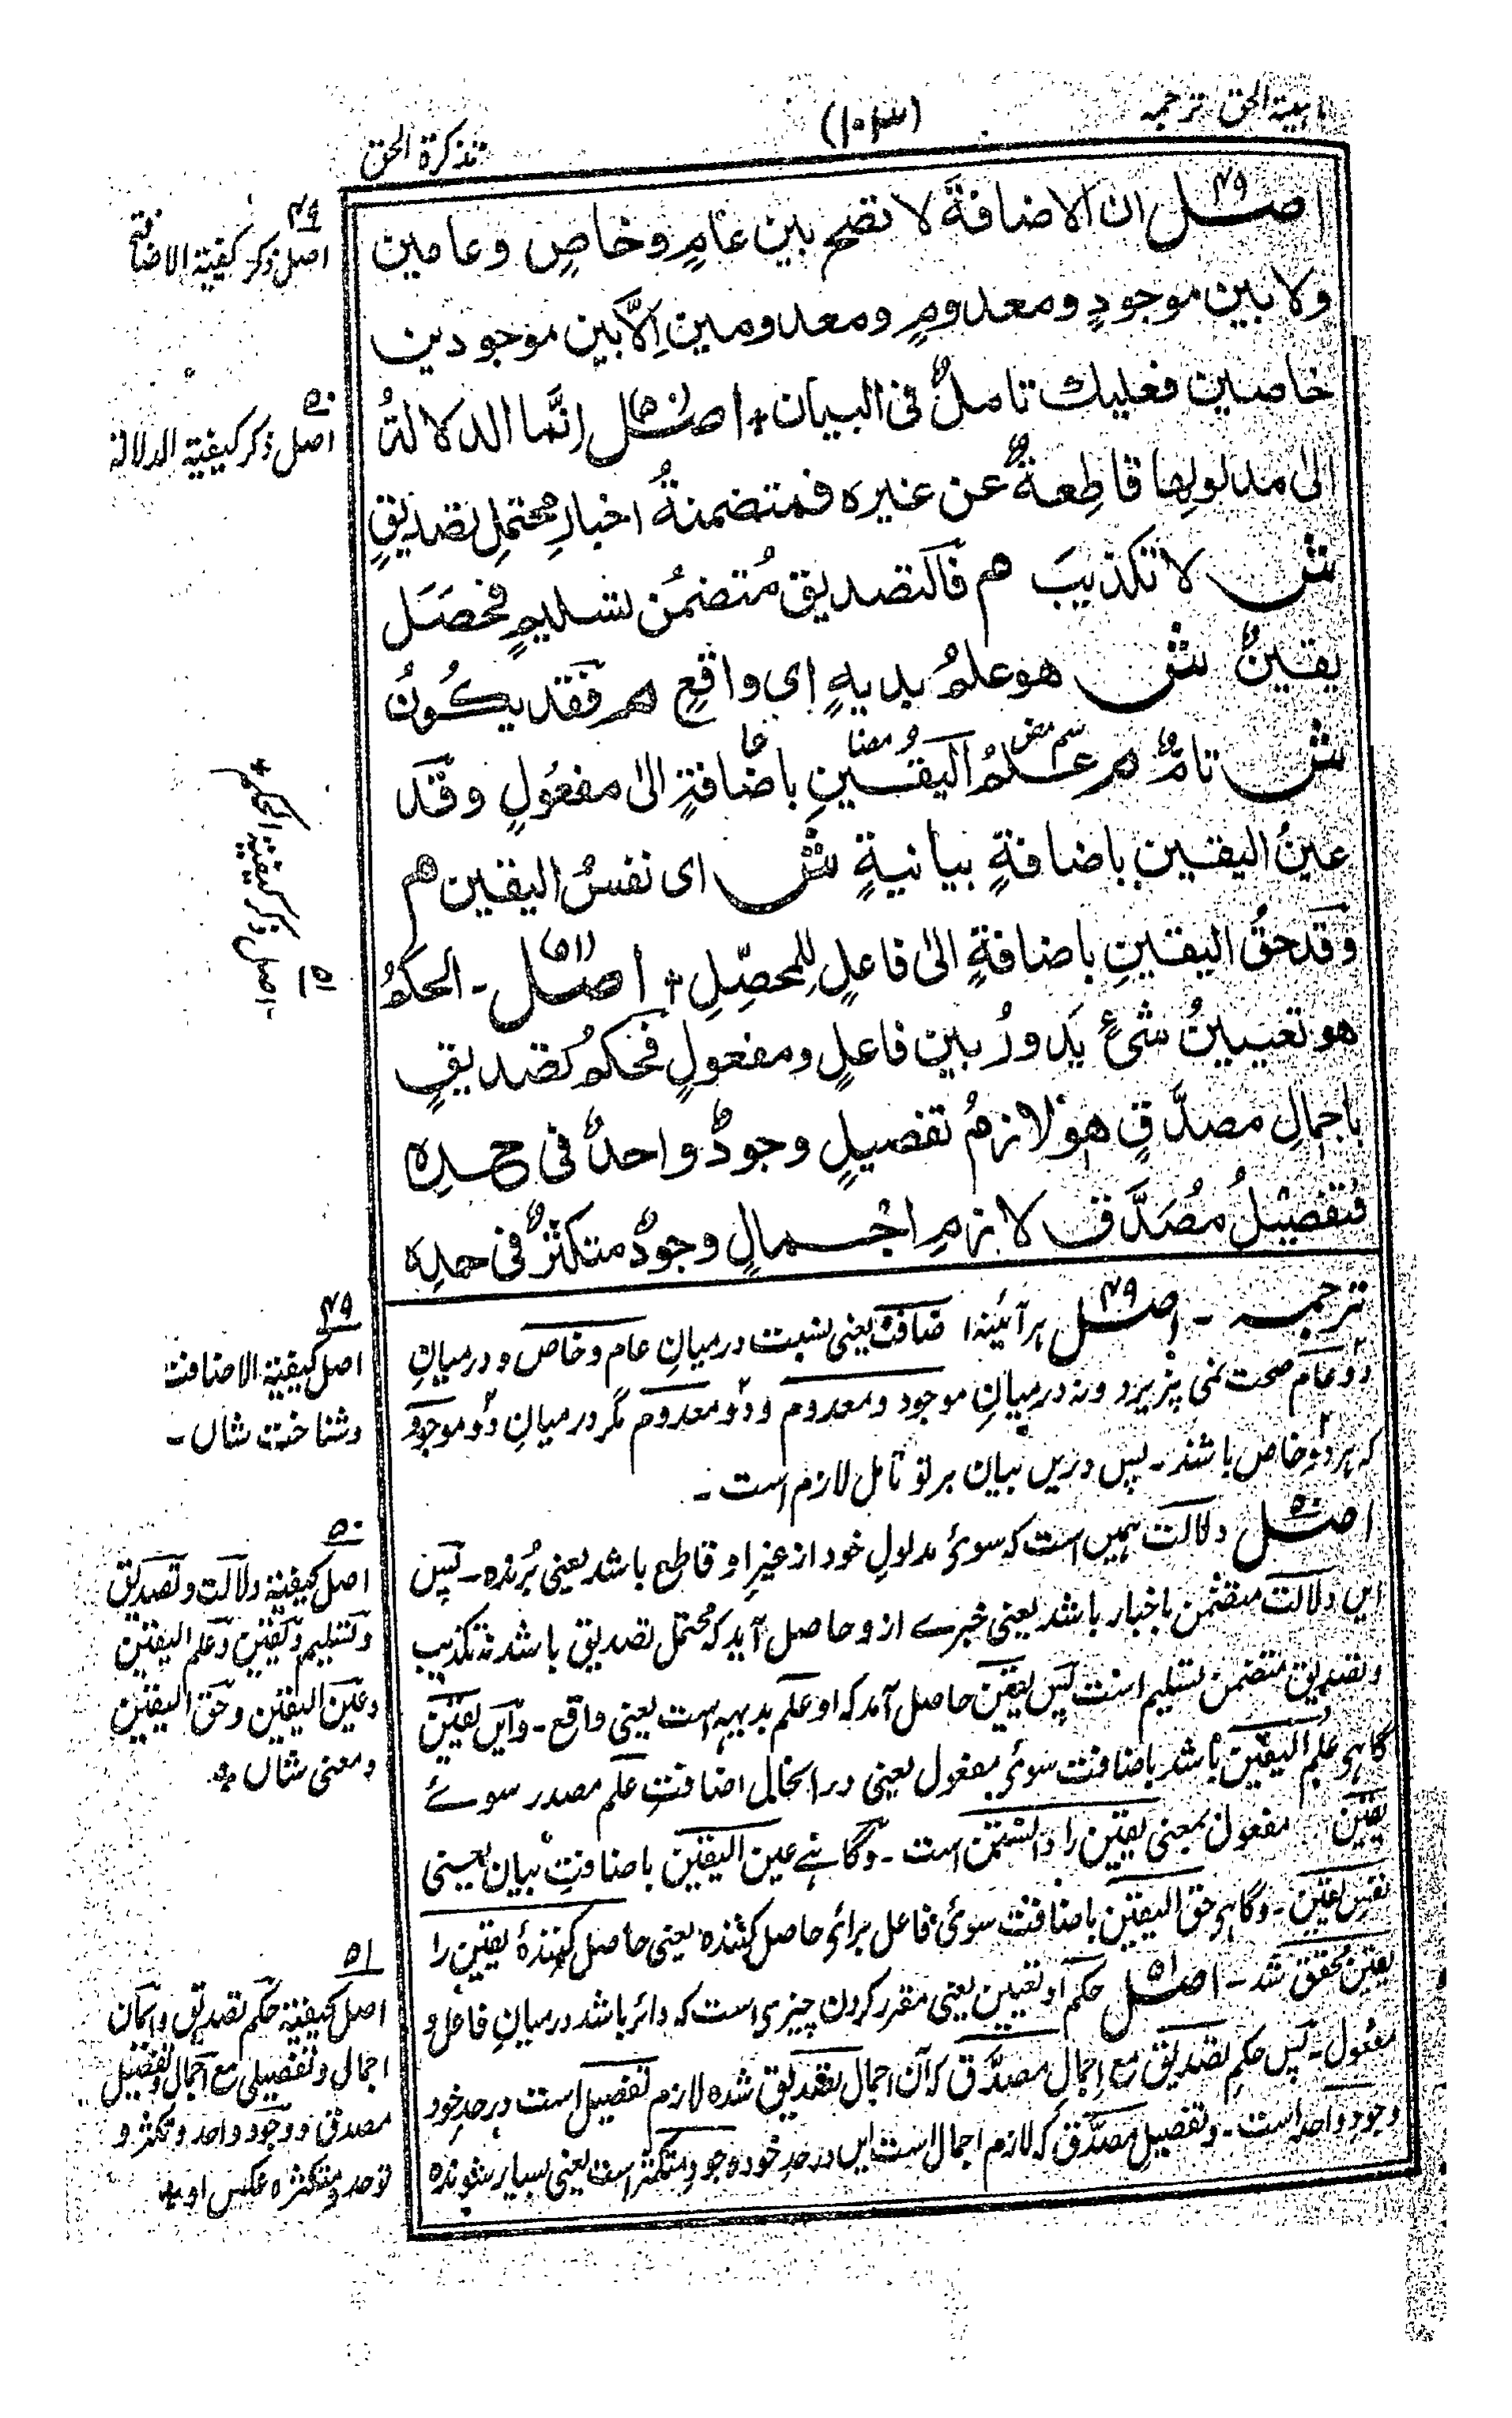 ترجمہ
(۱۰۳)
تذکرة الحق
اصل۴۹ ان الاضافةَ لا تصح بین عامٍ وخاصٍ وعامین
ولا بین موجودٍ ومعدومٍ ومعدومین اِلاَّ بین موجودین
خاصین فعلیك تاملٌ فی البیان + اصل۵۰ اِنَّما الدلالةُ
الیٰ مدلولِها قاطِعةٌ عن غیره فمتضمنةُ اخبارِ محتملِ تصدیقٍ
ش لا تکذیبَ هم فَالتصدیق مُتضمنُ تسلیمٍ فحصَلَ
یقینٌ ش هو علمُ بدیهٍ ای واقعٍ هم فَقَد یکُونُ
ش تامٌ هم علمُ الیقینِ باضافةٍ الیٰ مفعُولٍ وقَد
عینُ الیقینِ باضافةٍ بیانیةٍ ش ای نفسُ الیقین هم
وَقَد حقُ الیقینِ باضافةٍ الیٰ فاعلٍ لِلمحصِّلِ + اصل۵۱ - الحکمُ
هو تعیینُ شیءٍ یَدورُ بین فاعلٍ ومفعولٍ فحکمُ تصدیقٍ
باجمالِ مصدَّقٍ هو لازمُ تفصیلٍ وجودٌ واحدٌ فی حدِه
فتفصیلُ مُصَدَّق لازمِ اجمالٍ وجودٌ متکثرٌ فی حدِه
۴۹
اصل ذکر کیفیة الاضافة
۵۰
اصل ذکر کیفیة الدلالة
۵۱
اصل ذکر کیفیة الحکم +
ترجمہ - اصل۴۹ ہر آئینہ اضافت یعنی نسبت درمیانِ عام وخاص و درمیانِ
دو عام صحت نمی پذیرد ونہ درمیانِ موجود ومعدوم ودو معدوم مگر درمیانِ دو موجود
کہ ہر دو خاص باشند - پس دریں بیان بر تو تامل لازم است -
اصل۵۰ دلالت ہمیں است کہ سوئ مدلولِ خود از غیرِ او قاطع باشد یعنی بُرندہ - پس
ایں دلالت متضمن باخبار باشد یعنی خبرے از و حاصل آید کہ محتمل تصدیق باشد نہ تکذیب
وتصدیق متضمن تسلیم است پس یقین حاصل آمد کہ او علم بدیہہ است یعنی واقع - وایں یقین
گاہے علم الیقین باشد باضافت سوئ مفعول یعنی درانحال اضافتِ علم مصدر سوے
یقین مفعول بمعنی یقین را دانستن است - وگاہے عین الیقین باضافتِ بیان یعنی
نفس یقین - وگاہے حق الیقین باضافت سوئ فاعل برائے حاصل کنندہ یعنی حاصل کنندۂ یقین را
یقین محقق شد - اصل۵۱ حکم او تعیین یعنی مقرر کردن چیزی است کہ دائر باشد درمیانِ فاعل و
مفعول - پس حکمِ تصدیق مع اِجمالِ مصدَّق کہ آن اجمال تصدیق شدہ لازم تفصیل است در حدِ خود
وجود واحد است - وتفصیلِ مصدَّق کہ لازم اجمال است ایں در حدِ خود وجود متکثر است یعنی بسیار شوندہ
۴۹
اصل کیفیة الاضافت
وشناخت شاں -
۵۰
اصل کیفیة دلالت وتصدیق
وتسلیم ویقین وعلم الیقین
وعین الیقین وحق الیقین
ومعنی شاں
۵۱
اصل کیفیة حکم تصدیق وایمان
اجمالی وتفصیلی مع اجمال وتفصیل
مصدق ووجود واحد وتکثر و
توحد ومتکثرہ عکس او